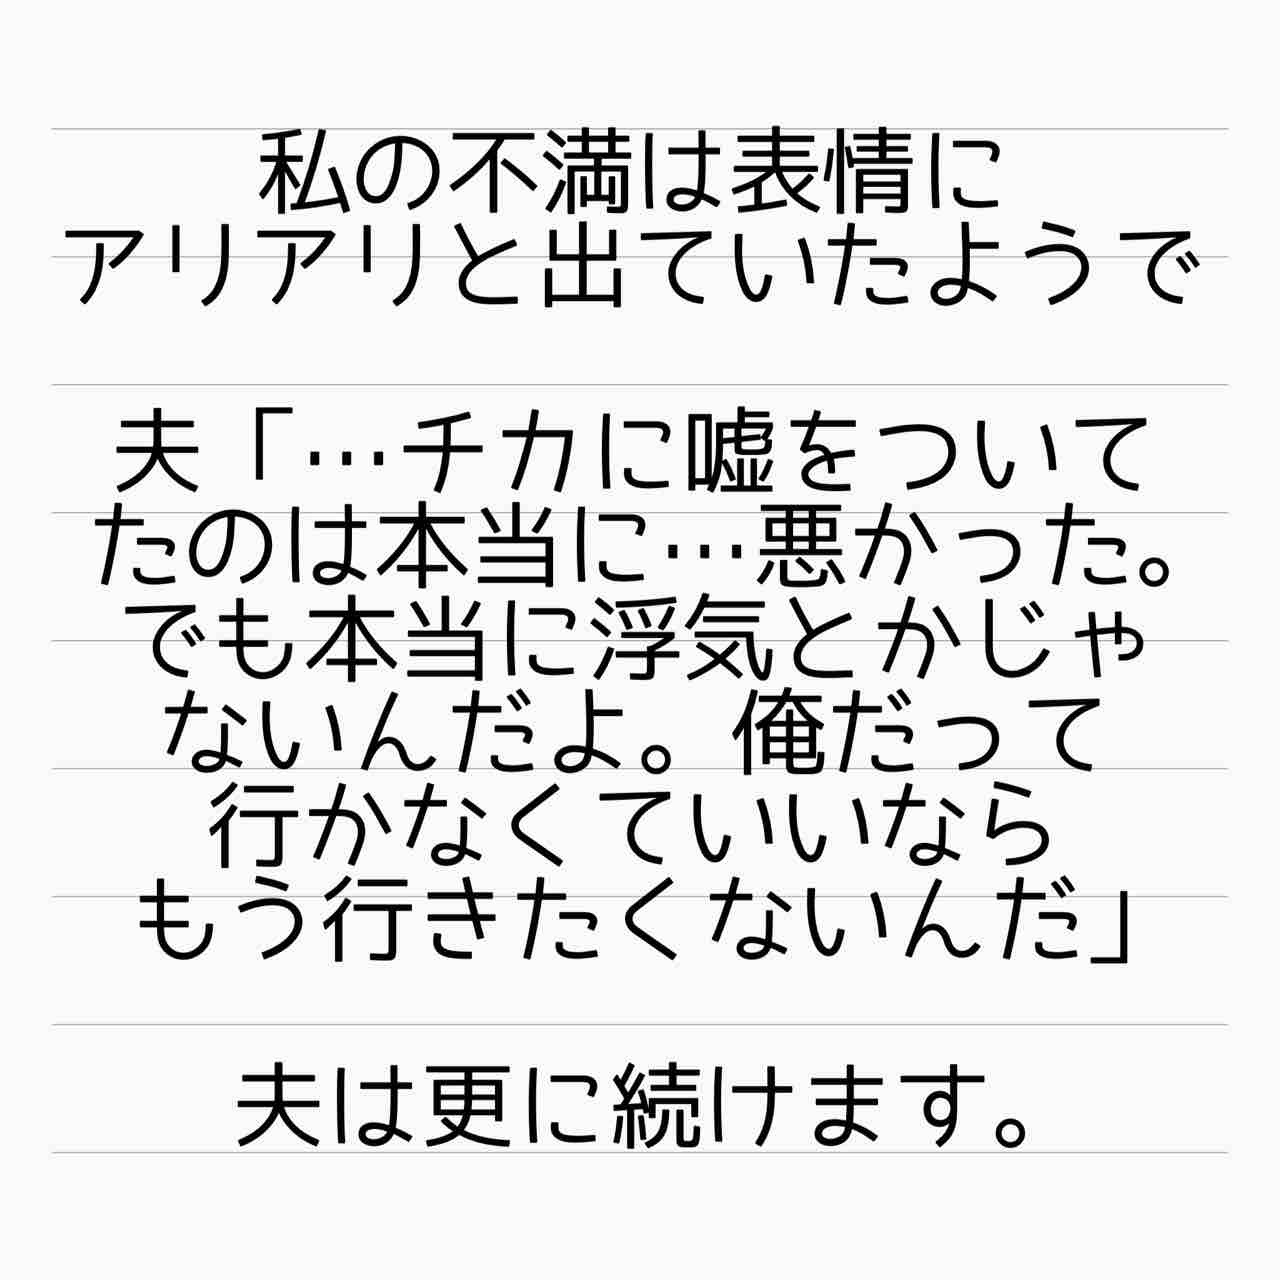 私の不満は表情に
アリアリと出ていたようで
夫「…チカに嘘をついて
たのは本当に…悪かった。
でも本当に浮気とかじゃ
ないんだよ。俺だって
行かなくていいなら
もう行きたくないんだ」
夫は更に続けます。